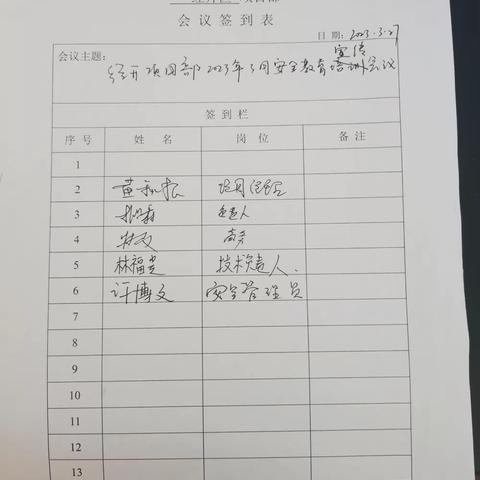 经开区 项目部
会议签到表
日 期: 2023.3.27
会议主题:
宣传
经开项目部2023年3月安全教育培训会议
签到栏
序号 姓名 岗位 备注
1
2 黄 项目经理
3 人
4 商务
5 林福 技术负责人.
6 许博文 安全管理员
7
8
9
10
11
12
13